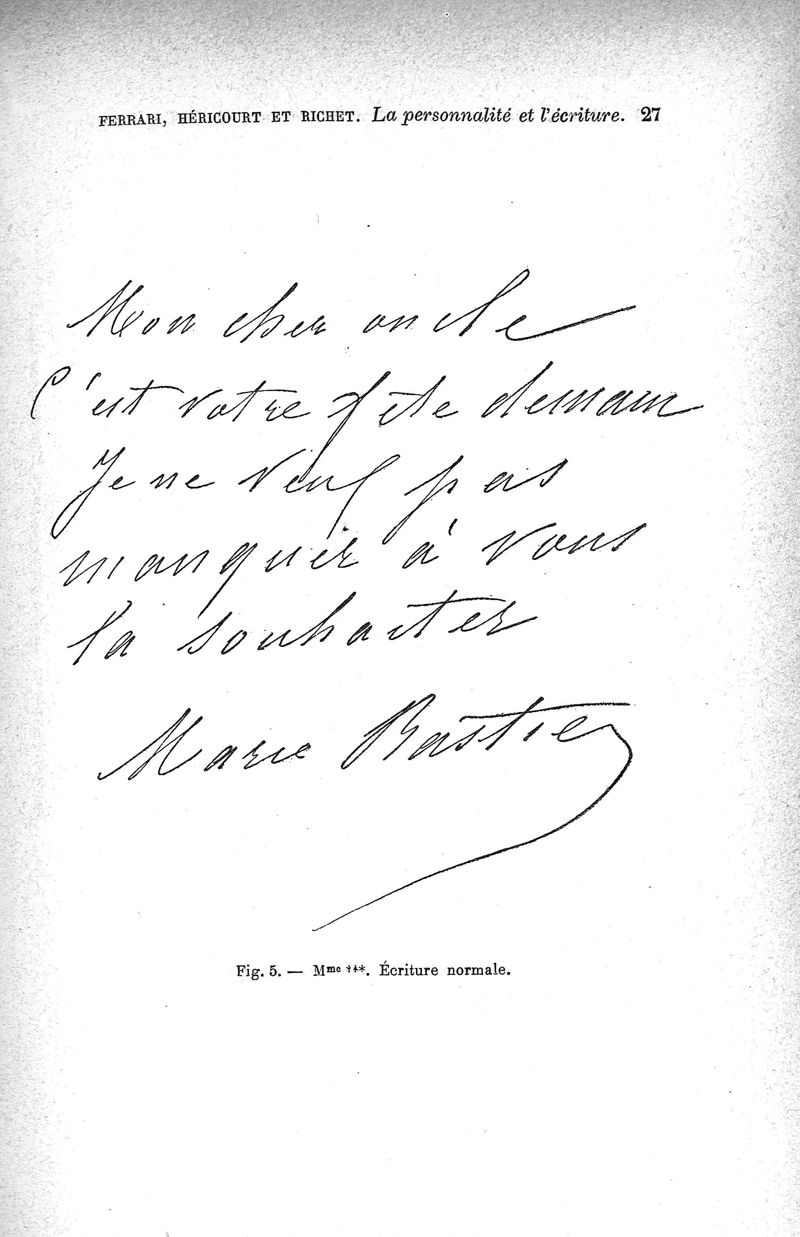 FERRARI, HÉRICOURT ET RICHET. La personnalité et l'écriture. 27
Mon cher oncle
C'est votre fête demain
Je ne veux pas
manquer à vous
la souhaiter
Marie Bastie
Fig. 5. — Mme ***. Écriture normale.